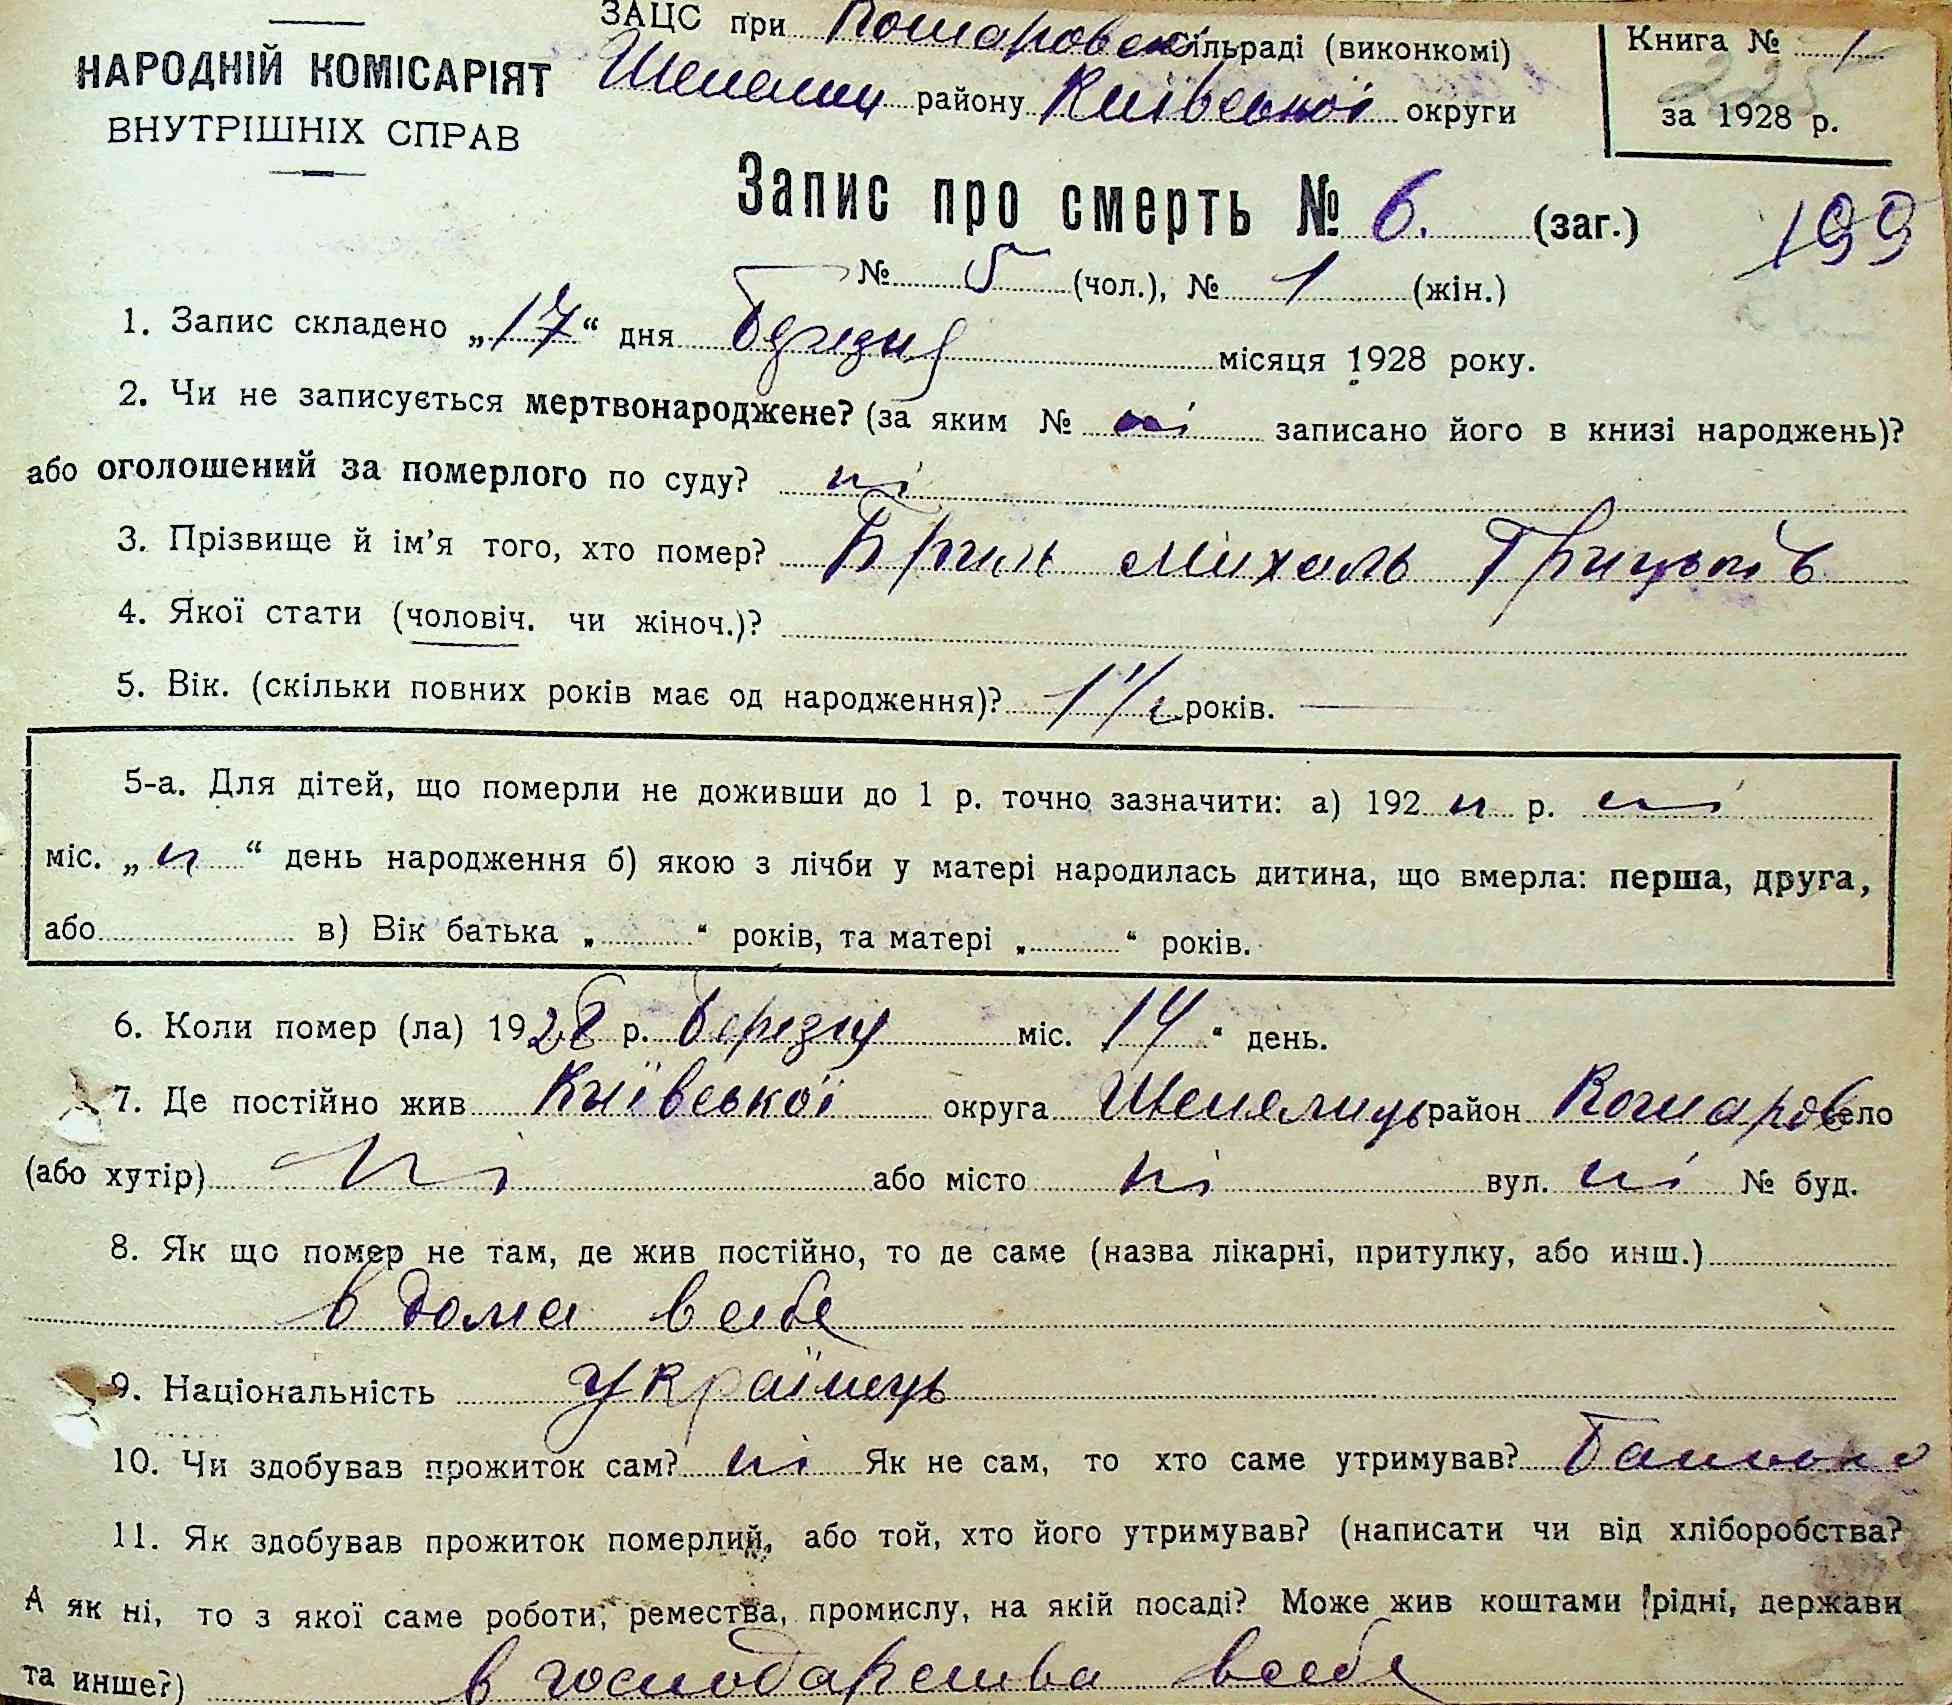 НАРОДНІЙ КОМІСАРІЯТ
ВНУТРІШНІХ СПРАВ
ЗАЦС при Кошаровск сільраді (виконкомі)
Шепелиц району Київської округи
Книга № 1
за 1928 р.
Запис про смерть № 6. (заг.)
199
№ 5 (чол.), № 1 (жін.)
1. Запис складено „17“ дня Березня місяця 1928 року.
2. Чи не записується мертвонароджене? (за яким № ні записано його в книзі народжень)?
або оголошений за померлого по суду? ні
3. Прізвище й ім’я того, хто помер? Бриль Михаль Грицьків
4. Якої стати (чоловіч. чи жіноч.)?
5. Вік. (скільки повних років має од народження)? 1 1/2 років.
5-а. Для дітей, що померли не доживши до 1 р. точно зазначити: а) 192 н р. ні
міс. „ н “ день народження б) якою з лічби у матері народилась дитина, що вмерла: перша, друга,
або в) Вік батька „ “ років, та матері „ “ років.
6. Коли помер (ла) 1928 р. Березня міс. 14 “ день.
7. Де постійно жив Київської округа Шепелиць район Кошаров село
(або хутір) ні або місто ні вул. ні № буд.
8. Як що помер не там, де жив постійно, то де саме (назва лікарні, притулку, або инш.)
в дома в себе
9. Національність Українець
10. Чи здобував прожиток сам? ні Як не сам, то хто саме утримував? Батько
11. Як здобував прожиток померлий, або той, хто його утримував? (написати чи від хліборобства?
А як ні, то з якої саме роботи, ремества, промислу, на якій посаді? Може жив коштами рідні, держави
та инше?) в господарства в себе